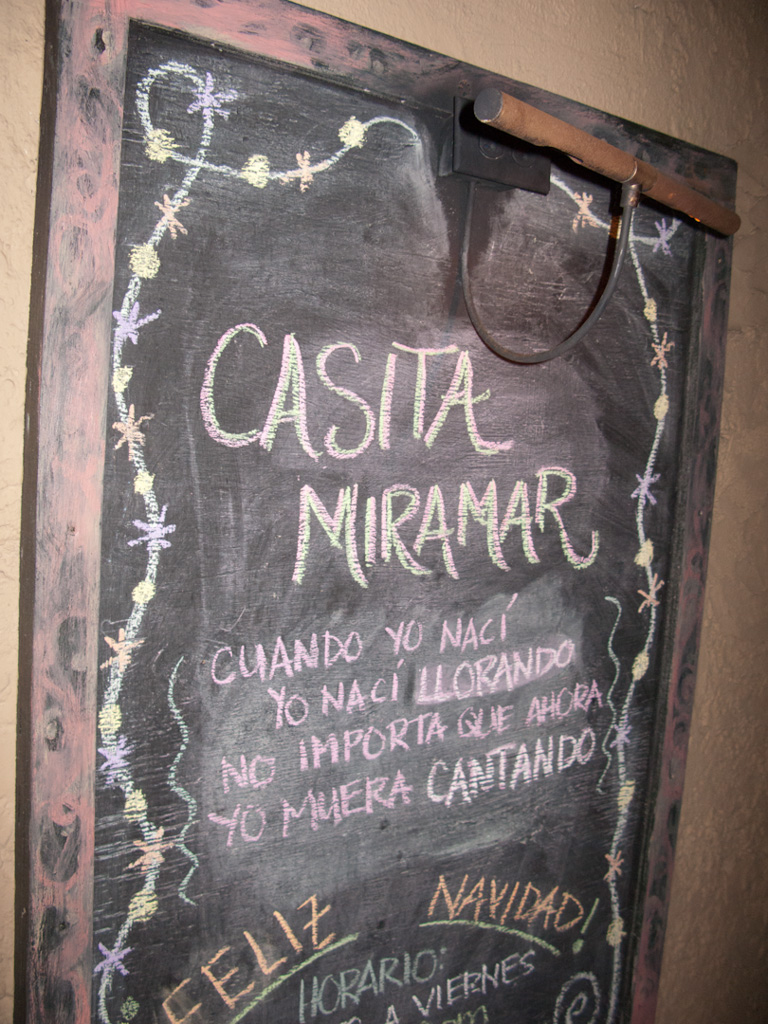 CASITA
MIRAMAR
CUANDO YO NACÍ
YO NACÍ LLORANDO
NO IMPORTA QUE AHORA
YO MUERA CANTANDO
FELIZ NAVIDAD!
HORARIO:
A VIERNES